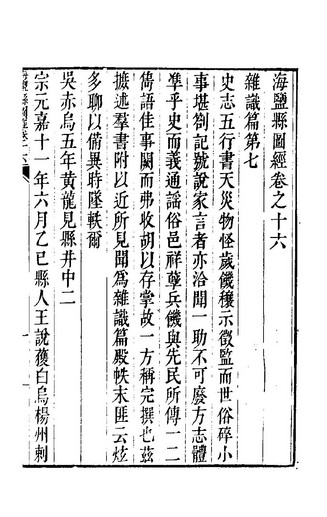 海鹽縣圖經卷之十六
雜識篇第七
史志五行書天災物怪歲饑穰示徵監而世俗碎小
事堪劄記號說家言者亦洽聞一助不可廢方志體
準乎史而義通謡俗邑祥孽兵饑與先民所傳一二
雋語佳事闕而弗收胡以存掌故一方稱完撰也茲
摭述羣書附以近所見聞為雜識篇殿帙末匪云炫
多聊以備異時墜軼爾
吳赤烏五年黃龍見縣井中二
宗元嘉十一年六月乙巳縣人王說獲白烏楊州刺